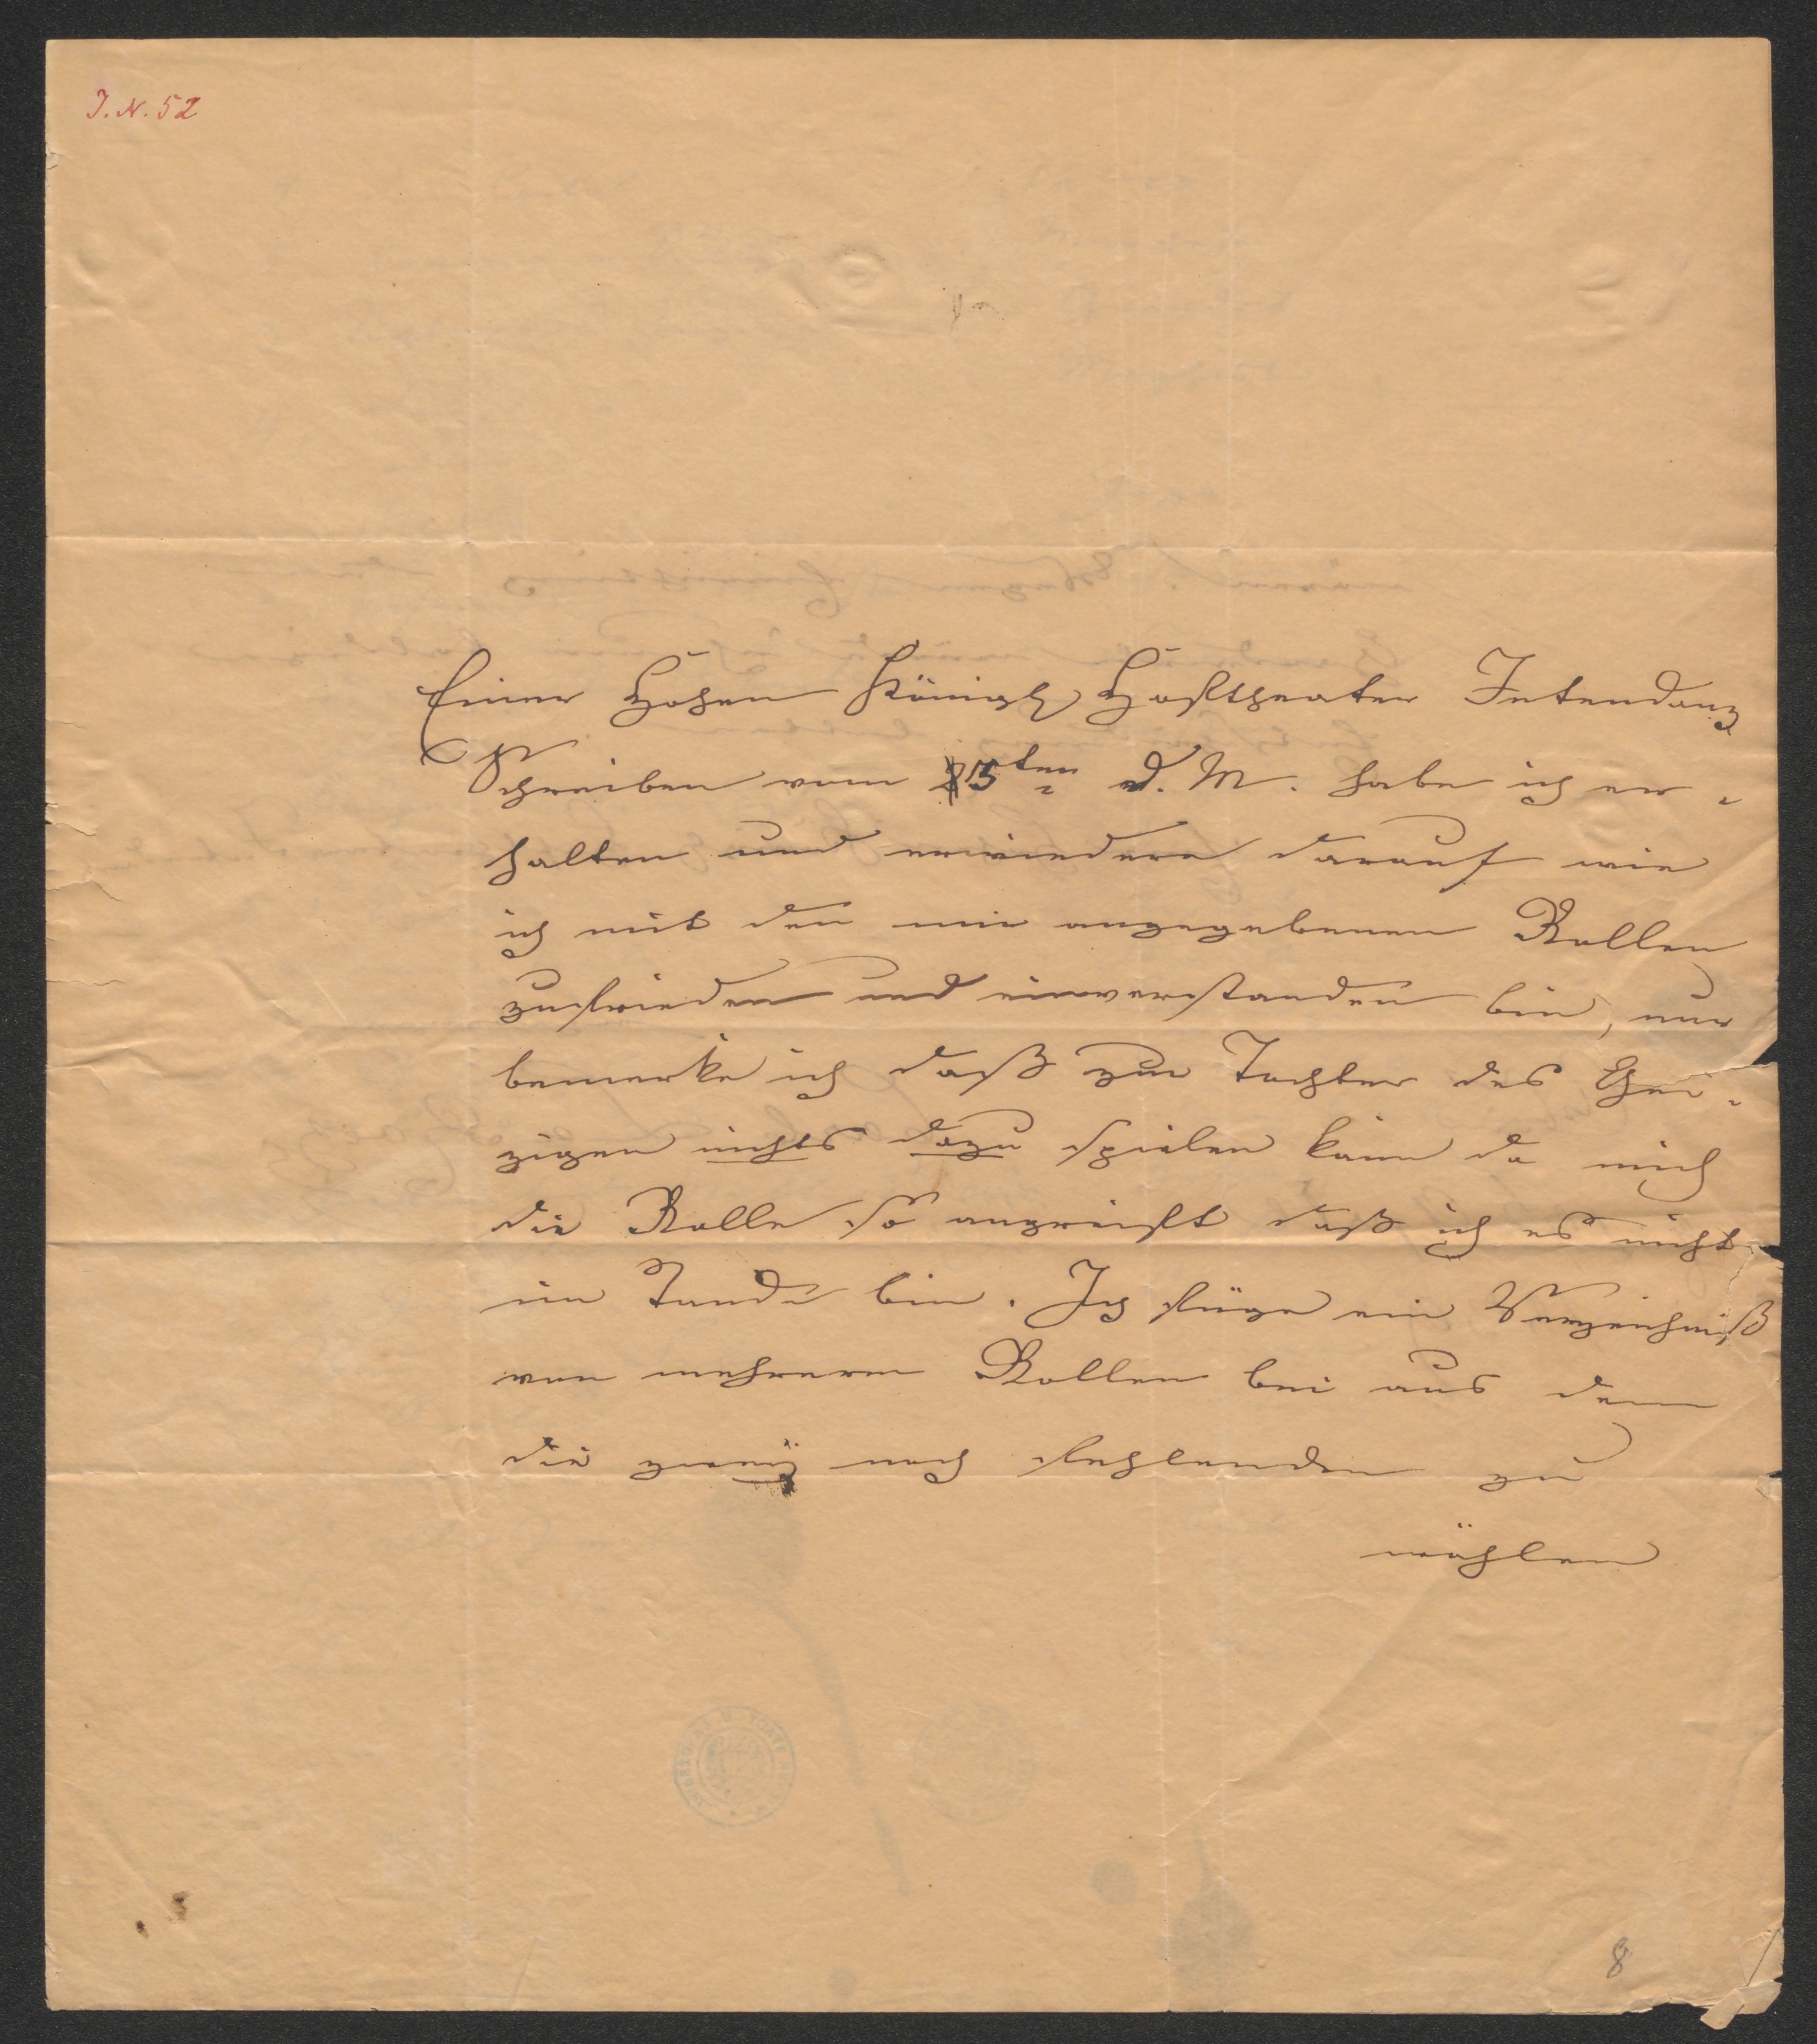 J. N. 52
Einer Hohen Königl Hoftheater Intendanz
Schreiben vom 15ten d. M. habe ich er-
halten und erwiedere darauf wie
ich mit den mir angegebenen Rollen
zufrieden und einverstanden bin, nur
bemerke ich daß zur Tochter des Gei-
zigen nichts dazu spielen kann da mich
die Rolle so angreift daß ich es nicht
im Stande bin. Ich füge ein Verzeichniß
von mehreren Rollen bei aus dem
die zweÿ noch fehlenden zu
wählen
8